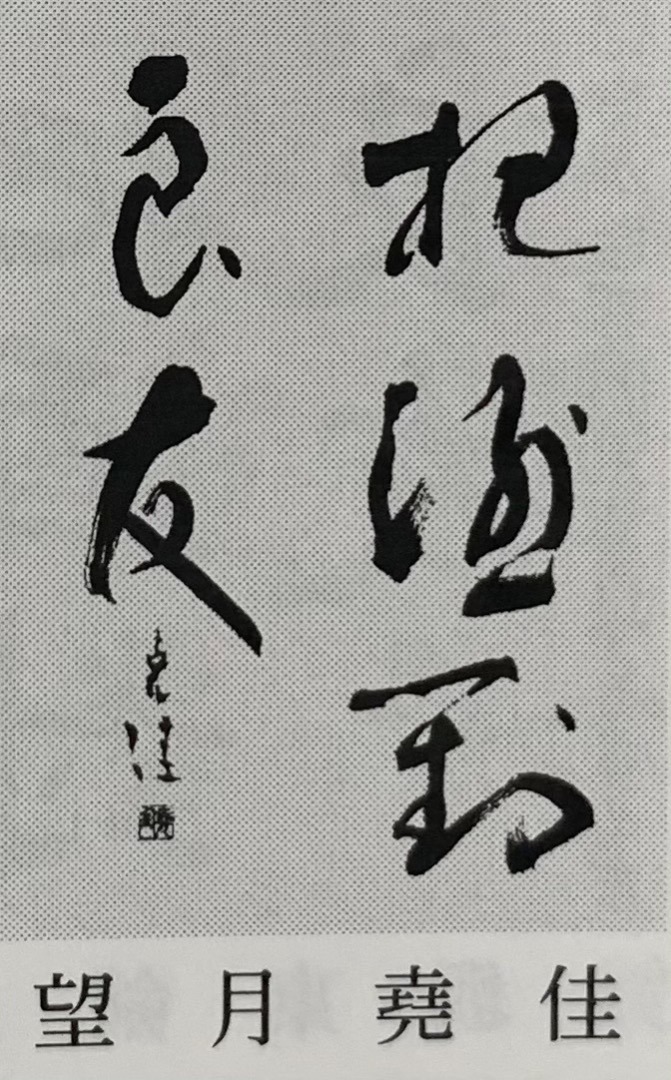 把酒對
良友
堯佳
望月堯佳